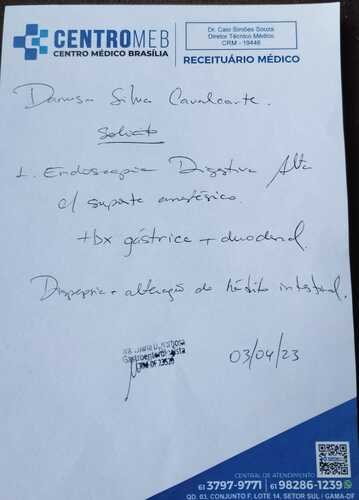 CENTROMEB
CENTRO MÉDICO BRASÍLIA
Dr. Caio Simões Souza
Diretor Técnico Médico
CRM - 19446
RECEITUÁRIO MÉDICO
Silva Cavalcante.
Solicito
1. Endoscopia Digestiva Alta
c/ suporte anestésico.
+bx gástrica + duodenal.
Dispepsia + alteração do hábito intestinal.
Gastroenterologista
03/04/23
CENTRAL DE ATENDIMENTO
61 3797-9771 | 61 98286-1239
QD. 03, CONJUNTO F, LOTE 14, SETOR SUL / GAMA-DF